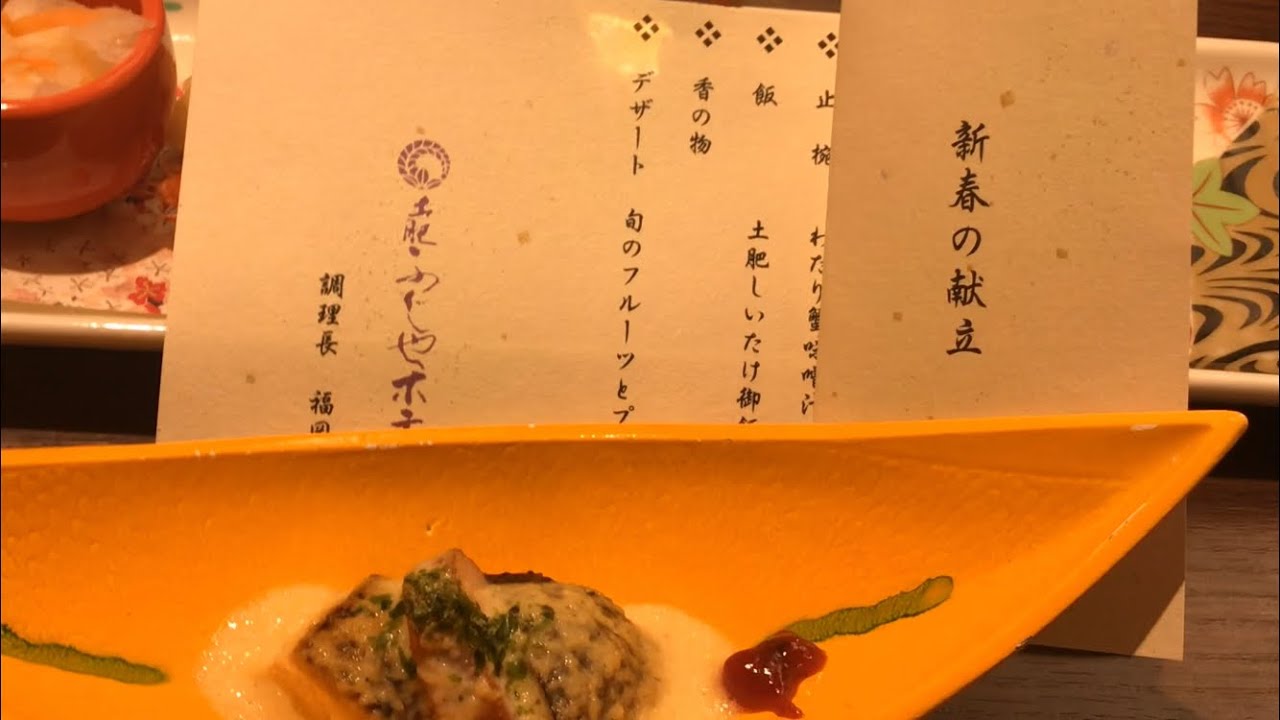 新春の献立
止椀 わたり蟹味噌汁
飯 土肥しいたけ御飯
香の物
デザート 旬のフルーツとプ
土肥ふじやホテ
調理長 福岡